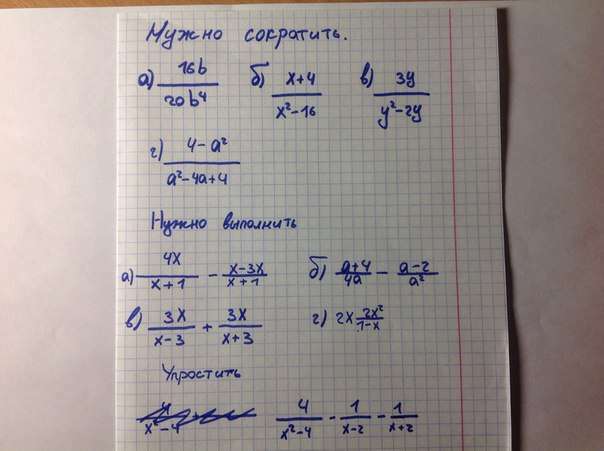 Нужно сократить.
а) 16b/20b⁴ б) x+4/x²-16 в) 3y/y²-2y
г) 4-a²/a²-4a+4
Нужно выполнить
а) 4x/x+1 - x-3x/x+1 б) a+4/4a - a-2/a²
в) 3x/x-3 + 3x/x+3 г) 2x 2x²/1-x
Упростить
4/x²-4 - 1/x-2 - 1/x+2